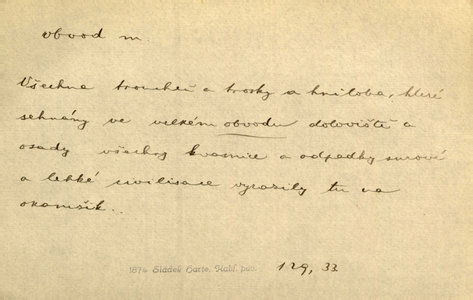 obvod m.
Všechna troucheň a trosky a hniloba, které
sehnány ve velkém obvodu doloviště a
osady všechny kvasnice a odpadky surové
a lehké civilisace vyrazily tu na
okamžik.
1874 Sládek Harte, Kalif. pov. 129, 33